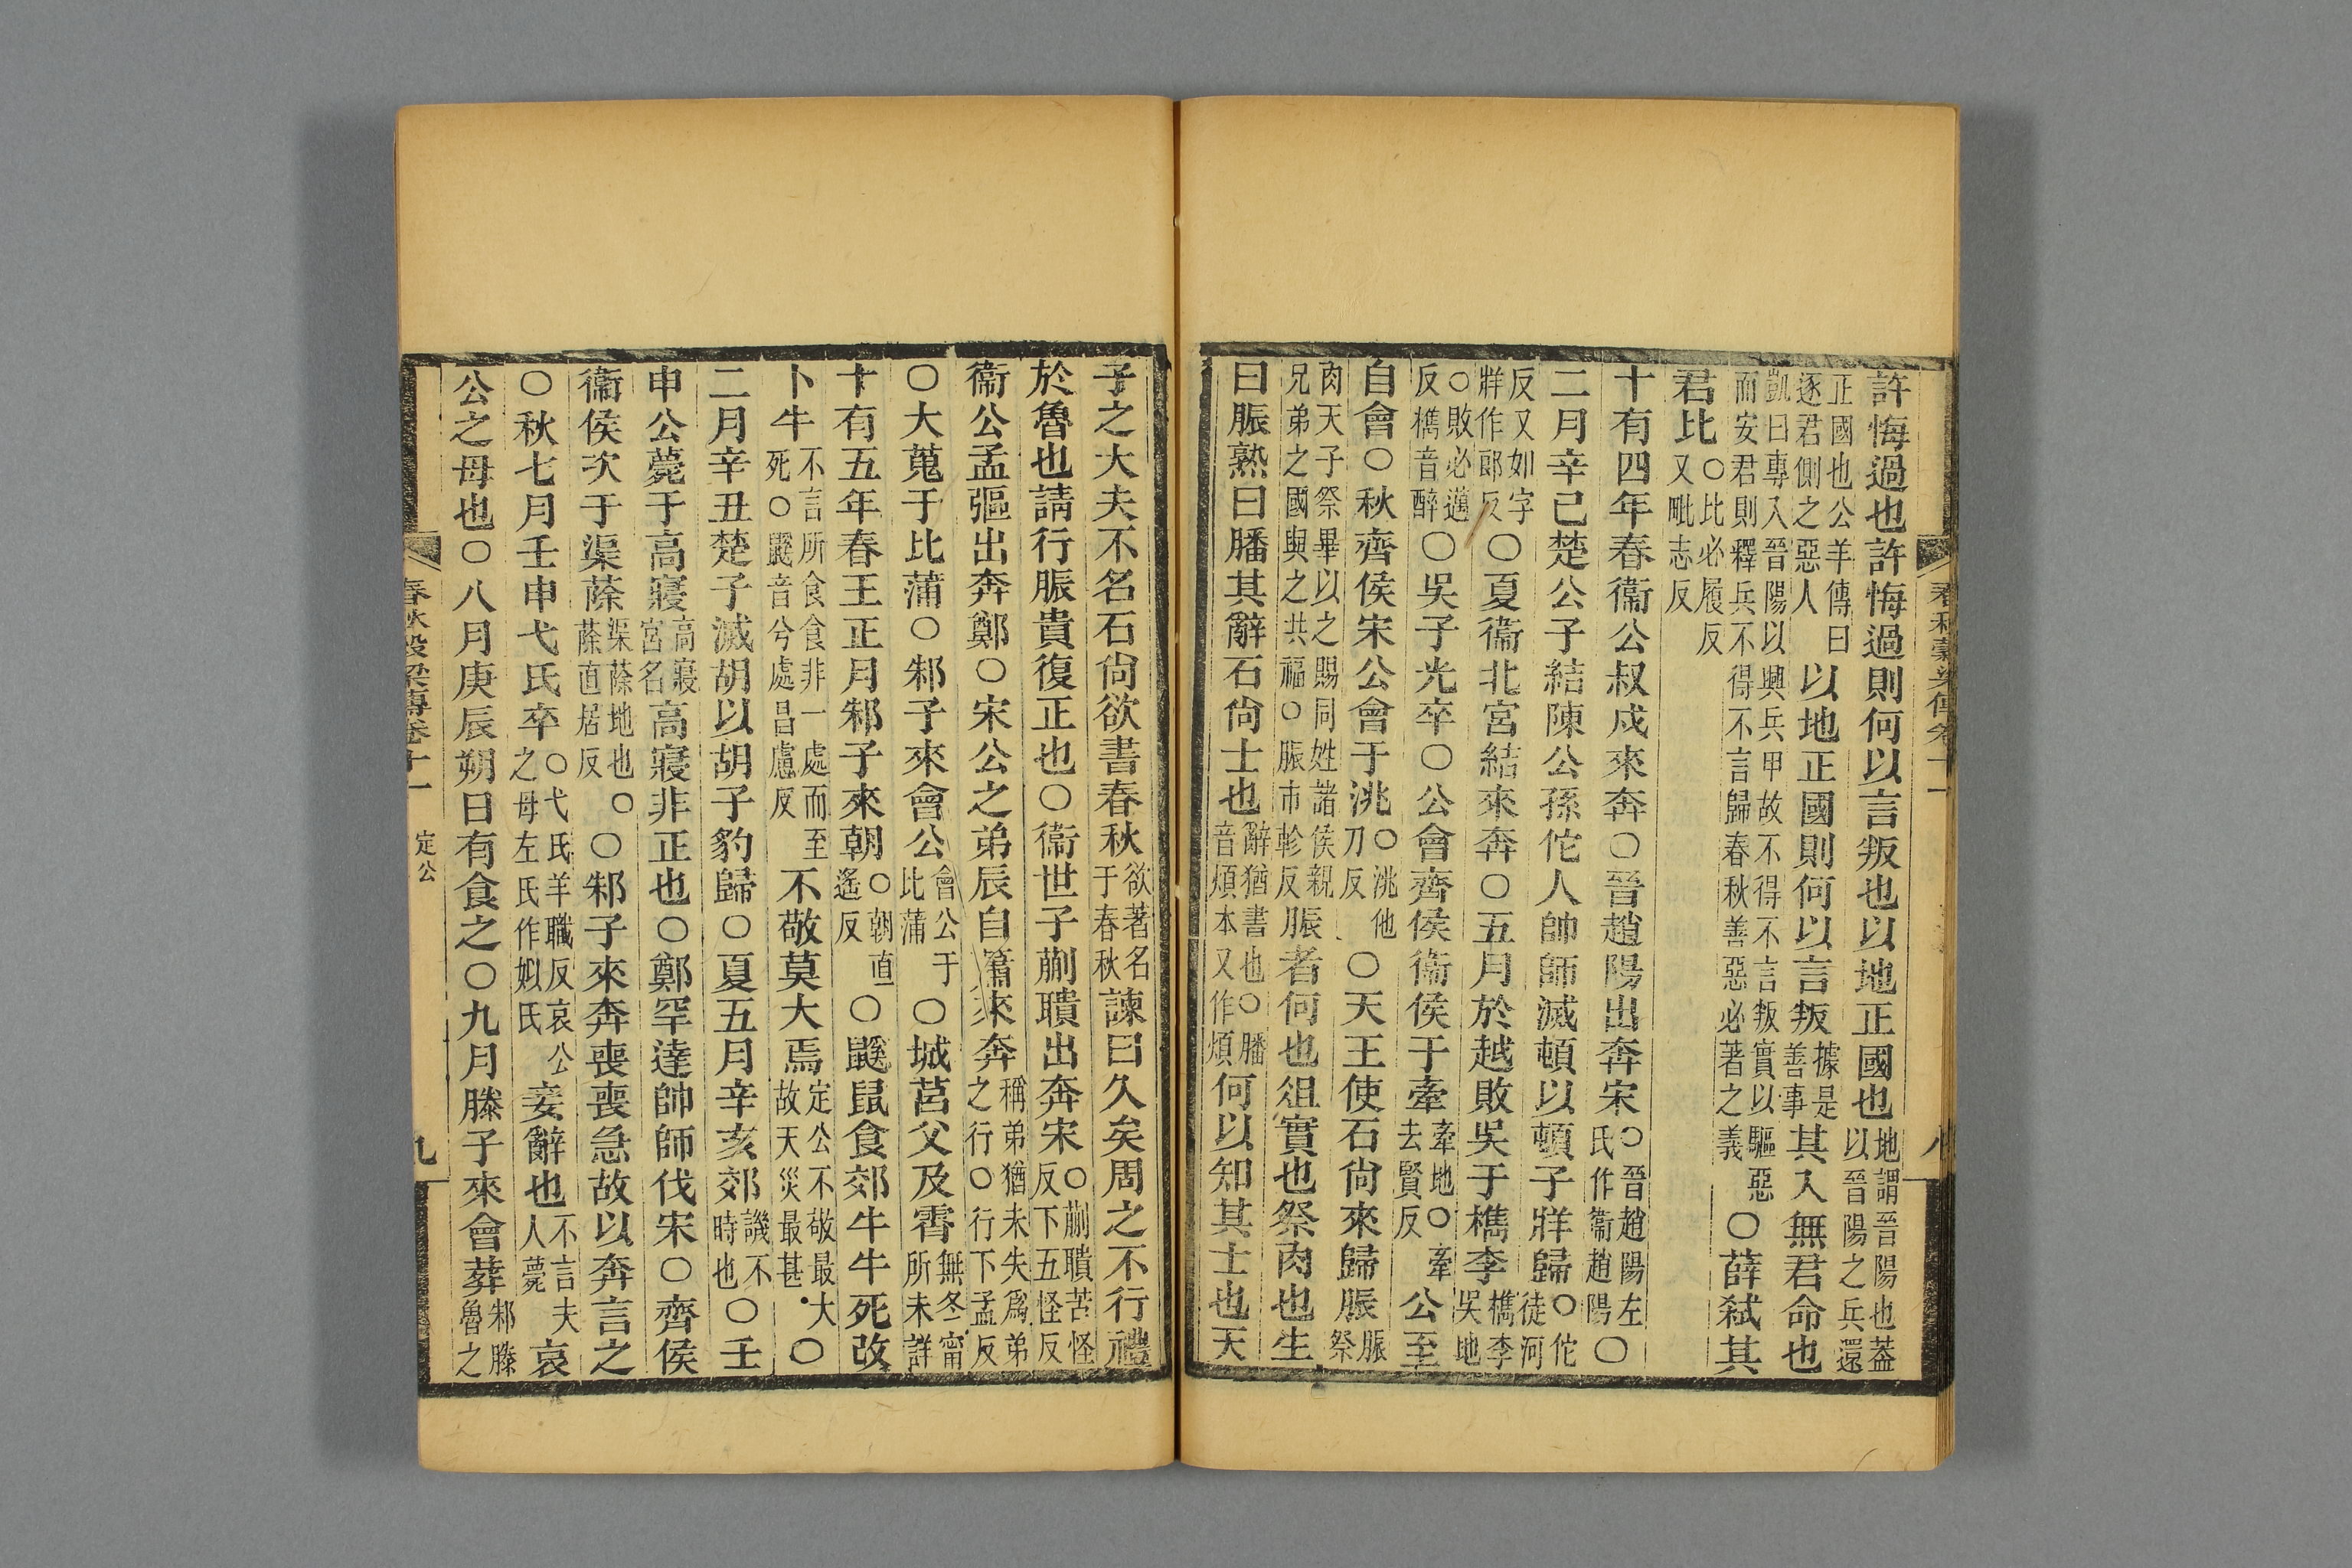 春秋穀梁傳卷十一 八
許悔過也許悔過則何以言叛也以地正國也地謂晉陽也葢以晉陽之兵還
正國也公羊傳曰逐君側之惡人以地正國則何以言叛據是善事其入無君命也
凱曰專入晉陽以興兵甲故不得不言叛實以驅惡而安君則釋兵不得不言歸春秋善惡必著之義○薛弑其
君比○比必履反又毗志反
十有四年春衞公叔戍來奔○晉趙陽出奔宋○晉趙陽左氏作衞趙陽○
二月辛巳楚公子結陳公孫佗人帥師滅頓以頓子牂歸○佗徒河
反又如字牂作郎反○夏衞北宮結來奔○五月於越敗吳于檇李檇李吳地
○敗必邁反檇音醉○吳子光卒○公會齊侯衞侯于牽牽地○牽去賢反公至
自會○秋齊侯宋公會于洮○洮他刀反○天王使石尙來歸脤脤祭
肉天子祭畢以之賜同姓諸侯親兄弟之國與之共福○脤市軫反脤者何也俎實也祭肉也生
曰脤熟曰膰其辭石尙士也辭猶書也○膰音煩本又作煩何以知其士也天
子之大夫不名石尙欲書春秋欲著名于春秋諫曰久矣周之不行禮
於魯也請行脤貴復正也○衞世子蒯聵出奔宋○蒯聵苦怪反下五怪反
衞公孟彄出奔鄭○宋公之弟辰自蕭來奔稱弟猶未失爲弟之行○行下孟反
○大蒐于比蒲○邾子來會公會公于比蒲○城莒父及霄無冬甯所未詳
十有五年春王正月邾子來朝○朝直遙反○鼷鼠食郊牛牛死改
卜牛不言所食食非一處而至死○鼷音兮處昌慮反不敬莫大焉定公不敬最大故天災最甚○
二月辛丑楚子滅胡以胡子豹歸○夏五月辛亥郊譏不時也○壬
申公薨于高寢高寢宮名高寢非正也○鄭罕達帥師伐宋○齊侯
衞侯次于渠蒢渠蒢地也○蒢直居反○邾子來奔喪喪急故以奔言之
○秋七月壬申弋氏卒○弋氏羊職反哀公之母左氏作姒氏妾辭也不言夫人薨哀
公之母也○八月庚辰朔日有食之○九月滕子來會葬邾滕魯之
春秋穀梁傳卷十一 定公 九